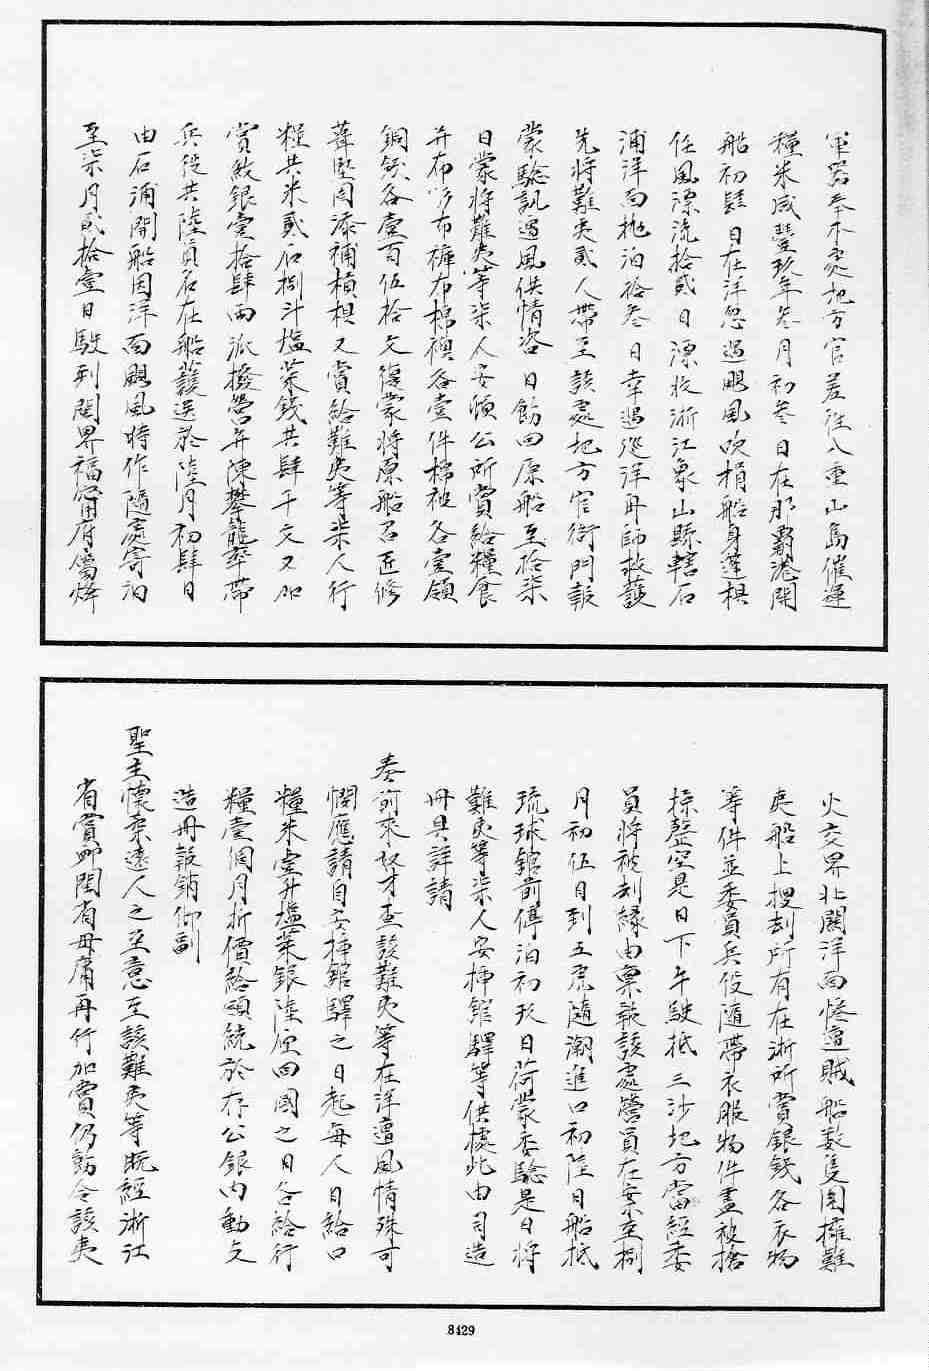 軍器奉本處地方官差往八重山島催運
糧米咸豐玖年叁月初叁日在那霸港開
船初肆日在洋忽遇颶風吹損船身蓬椇
任風漂流拾貳日漂收浙江象山縣轄石
浦洋面拋泊拾叁日幸遇巡洋舟師救護
先將難夷貳人帶至該處地方官衙門報
蒙驗訊遇風供情咨 日飭回原船至拾柒
日蒙將難夷等柒人安頓公所賞給糧食
并布衫布褲布棉襖各壹件棉被各壹領
銅錢各壹百伍拾文復蒙將原船召匠修
葺堅固添補楨椇又賞給難夷等柒人行
糧共米貳石捌斗塩菜錢共肆千文又加
賞銀壹拾肆兩派撥營弁陳攀龍率帶
兵役共陸員名在船護送於陸月初肆日
由石浦開船因洋面颶風時作隨處寄泊
至柒月貳拾壹日駛到閩界福寧府屬烽
火交界北關洋面惨遭賊船数隻圍擁難
夷船上搜刦所有在浙所賞銀錢各衣物
等件並委員兵役隨帶衣服物件盡被搶
掠罄空是日下午駛抵三沙地方當經委
員將被刦緣由稟報該處營員在案至捌
月初伍日到五虎隨潮進口初陸日船抵
琉球館前停泊初玖日荷蒙委驗是日將
難夷等柒人安揷館驛等供據此由司造
冊具詳請
奏前來奴才查該難夷等在洋遭風情殊可
憫應請自安揷館驛之日起每人日給口
糧米壹升塩菜銀陸厘回國之日各給行
糧壹個月折價給領統於存公銀內動支
造冊報銷仰副
聖主懷柔遠人之至意至該難夷等既經浙江
省賞䘏閩省毋庸再行加賞仍飭令該夷
8429